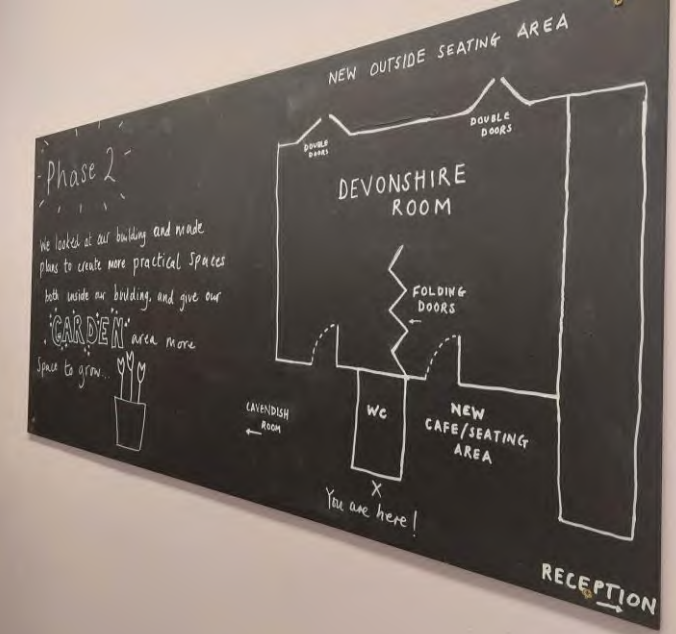 Phase 2
We looked at our building and made
plans to create more practical Spaces
both inside our building, and give our
GARDEN area more
Space to grow...
NEW OUTSIDE SEATING AREA
DOUBLE
DOORS
DOUBLE
DOORS
DEVONSHIRE
ROOM
FOLDING
DOORS
←
CAVENDISH
ROOM
←
WC
NEW
CAFE/SEATING
AREA
X
You are here!
RECEPTION
→